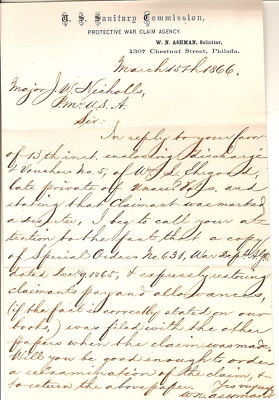 U. S. Sanitary Commission,
PROTECTIVE WAR CLAIM AGENCY.
W. N. ASHMAN, Solicitor,
1307 Chestnut Street, Philada.
March 15th 1866.
Major J. W. Nicholls,
P.M. U.S.A.
Sir:
In reply to your favor
of 13th inst. enclosing discharge
& Vouchers No. 5, of Wm. L.
late private of Vols. and
stating that Claimant was marked
a deserter, I beg to call your at-
tention to the fact that a copy
of Special Orders No. 631, War Dept.
dated Dec. 9, 1865, & expressly restoring
claimants pay and allowances,
(if the fact is correctly stated on our
books,) was filed with the other
papers when the claim was made.
Will you be good enough to order
a re-examination of the claim, &
to return the above paper. Yrs very
W. N. Ashman